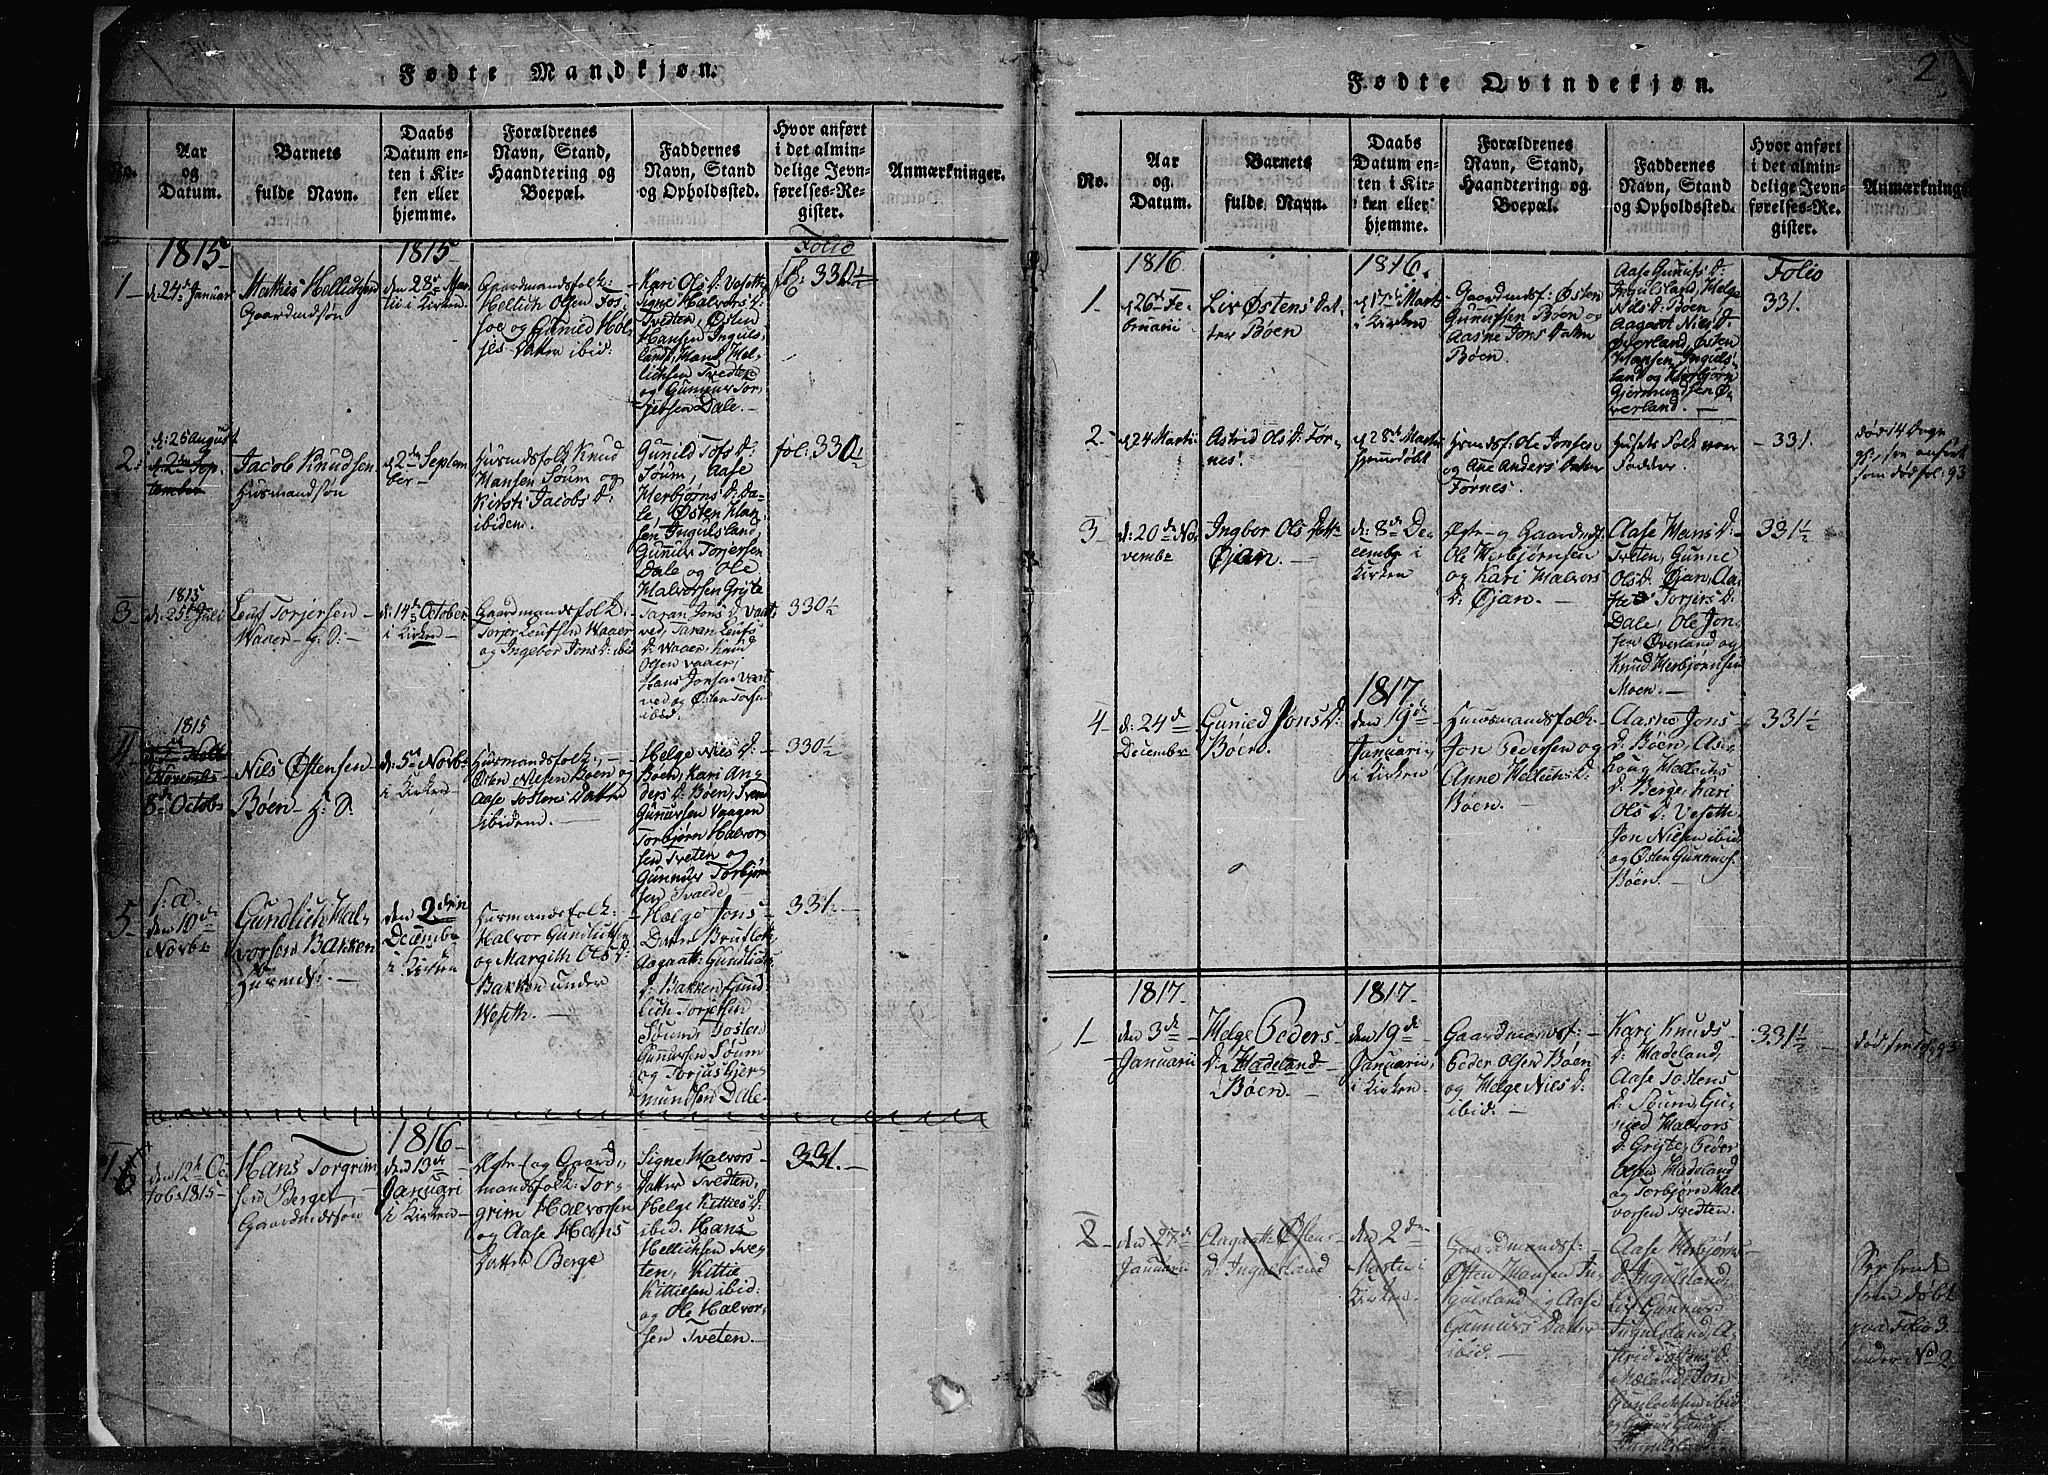 Fødte Mandkjøn.
No.
Aar
og
Datum.
Barnets
fulde Navn.
Daabs
Datum en-
ten i Kir-
ken eller
hjemme.
Forældrenes
Navn, Stand,
Haandtering og
Boepæl.
Faddernes
Navn, Stand
og Opholdssted.
Hvor anført
i det almin-
delige Jevn-
førelses-Re-
gister.
Anmærkninger.
1815
1815
Folio
1
d: 24de Januar
Mathis Hellichsen
Gaardmdssøn
den 28de Mar-
tii i Kirken
Gaardmandsfolk:
Hellich Olsen
og Gunild
Datter ibid:
Kari Ols D: Veseth
Signe Halvors D:
Tvedten, Østen
Hansen Inguls-
land, Hans Hel-
lichsen Tvedten
og Gunnur Tor-
jersen Dale.
fol: 330½
2
d: 25 August
d 2de Sep-
tember
Jacob Knudsen
Husmandssøn
d 2den Septem
ber
Husmdsfolk Knud
Hansen Søum og
Kirsti Jacobs D:
ibidem.
Gunild Tofs D:
Søum, Aase
Herbjørns D: Da-
le, Østen Han-
sen Ingulsland,
Gunnur Torjersen
Dale og Ole
Halvorsen Gryte
fol: 330½
3
1815
d: 25de Juli
Leuf Torjersen
Waaer G. S.
d: 14de October
i Kirken
Gaardmandsfolk:
Torjer Leufsen Waaer
og Ingebor Jons D: ibid
Taran Jons D: Vaat
ved, Taran Leufs
D: Waaer, Knud
Olsen Vaaer,
Hans Jonsen Vaat
ved og Østen Torsen
ibid.
330½
4
1815
Novemb
8de Octobr
Nils Østensen
Bøen H. S.
d: 5te Novbr
i Kirken
Husmandsfolk:
Østen Nilsen Bøen og
Aase Tostens Datter
ibidem.
Helge Nils D:
Bøen, Kari An-
ders D: Bøen, Svend
Gunursen Vaagen
Torbjørn Halvor-
sen Tveten og
Gunnur Torbjørn
sen Tvaede
330½
5
s: a:
den 10de
Novbr
Gundlich Hal-
vorsen Bakken
Husmd:
den 2den
Decembr
i Kirken
Husmandsfolk:
Halvor Gundlichsen
og Margith Ols D:
Bakken under
Weseth.
Helge Jons
Datter Brufloth
Aagaath Gundlichs
D: Bakken, Gund
lich Torjersen
Søum, Tosten
Gunursen Søum
og Torjus Gjer-
mundsen Dale
331.
1816
6
den 12te Oc
tobr 1815
Hans Torgrim
sen Berget
Gaardmdssøn
den 13de
Januari
i Kirken
Ægte og Gaard-
mandsfolk: Tor-
grim Halvorsen
og Aase Hans
Datter Berge
Signe Halvors
Datter Tvedten,
Helge Kitties D:
ibid. Hans
Hellichsen Tve-
ten, Kittie
Kittiesen ibid:
og Ole Halvor-
sen Tveten.
331.
2
Fødte Qvindekjøn.
No.
Aar
og
Datum.
Barnets
fulde Navn.
Daabs
Datum en-
ten i Kir-
ken eller
hjemme.
Forældrenes
Navn, Stand,
Haandtering og
Boepæl.
Faddernes
Navn, Stand
og Opholdssted.
Hvor anført
i det almin-
delige Jevn-
førelses-Re-
gister.
Anmærkning
1816
1816.
Folio
1
d 26de Fe-
bruarii
Liv Østens Dat-
ter Bøen
d 17de Marts
i Kirken
Gaardmdsf: Østen
Gunursen Bøen og
Aasne Jons Datter
Bøen.
Aase Gunufs D:
Ingulsland, Helge
Nils D: Bøen,
Aagaat Niels D:
Øverland, Østen
Hansen Inguls-
land og Herbjørn
Gjermundsen Ø-
verland.
331.
2
d 24 Martii
Astrid Ols D: Tør-
nes.
d 28de Marti
hjemmedøbt
Husmdsf: Ole Jonsen
og Ane Anders Datter
Tørnes.
Husets Folk vare
Faddere.
331.
død 14 Dage
gl., see anført
som død fol: 93
3
d: 20de No-
vembr
Ingbor Ols Datt:
Øjan.
d: 8de De-
cembr i
Kirken
Ægte- og Gaardmdsf:
Ole Herbjørnsen
og Kari Halvors
D: Øjan.
Aase Hans D:
Tveten, Gunne
Ols D: Øjan, Aa-
Torjers D:
Dale, Ole Jon-
sen Øverland og
Knud Herbjørnsen
Moen.
331½
1817
4
d: 24de
Decembr
Gunied Jons D:
Bøen.
den 19de
Januarii
i Kirken
Huusmandsfolk:
Jon Pedersen og
Anne Hellichs D:
Bøen.
Aasne Jons
D: Bøen, As-
loug Hellichs
D: Berge, Kari
Ols D: Veseth,
Jon Nilsen ibid:
og Østen Gunnufs.
Bøen.
331½
1817.
1817.
1
den 3de
Januarii
Helge Peders
D: Hadeland
Bøen.
den 19de
Januarii
i Kirken
Gaardmandsf:
Peder Olsen Bøen
og Helge Niels D:
ibid.
Kari Knuds
D: Hadeland,
Aase Tostens
D: Søum, Gu-
nied Halvors
D: Gryte, Peder
Olsen Hadeland
og Torbjørn Hal-
vorsen Tvedten.
331½
død fol: 93
8
den 27de
Januarii
Aagaath Østens
D: Ingulsland
den 2den
Martii i
Kirken
Gaardmandsf:
Østen Hansen In-
gulsland og Aase
Gunnurs Datter
ibid.
Aase Herbjørns
D: Ingulsland,
Liv Gunnurs
Ingulsland, A-
strid Tostens D:
Jon
Gunlichsen ibid
Ser hende
som døbt
paa Folio 3.
under No 2